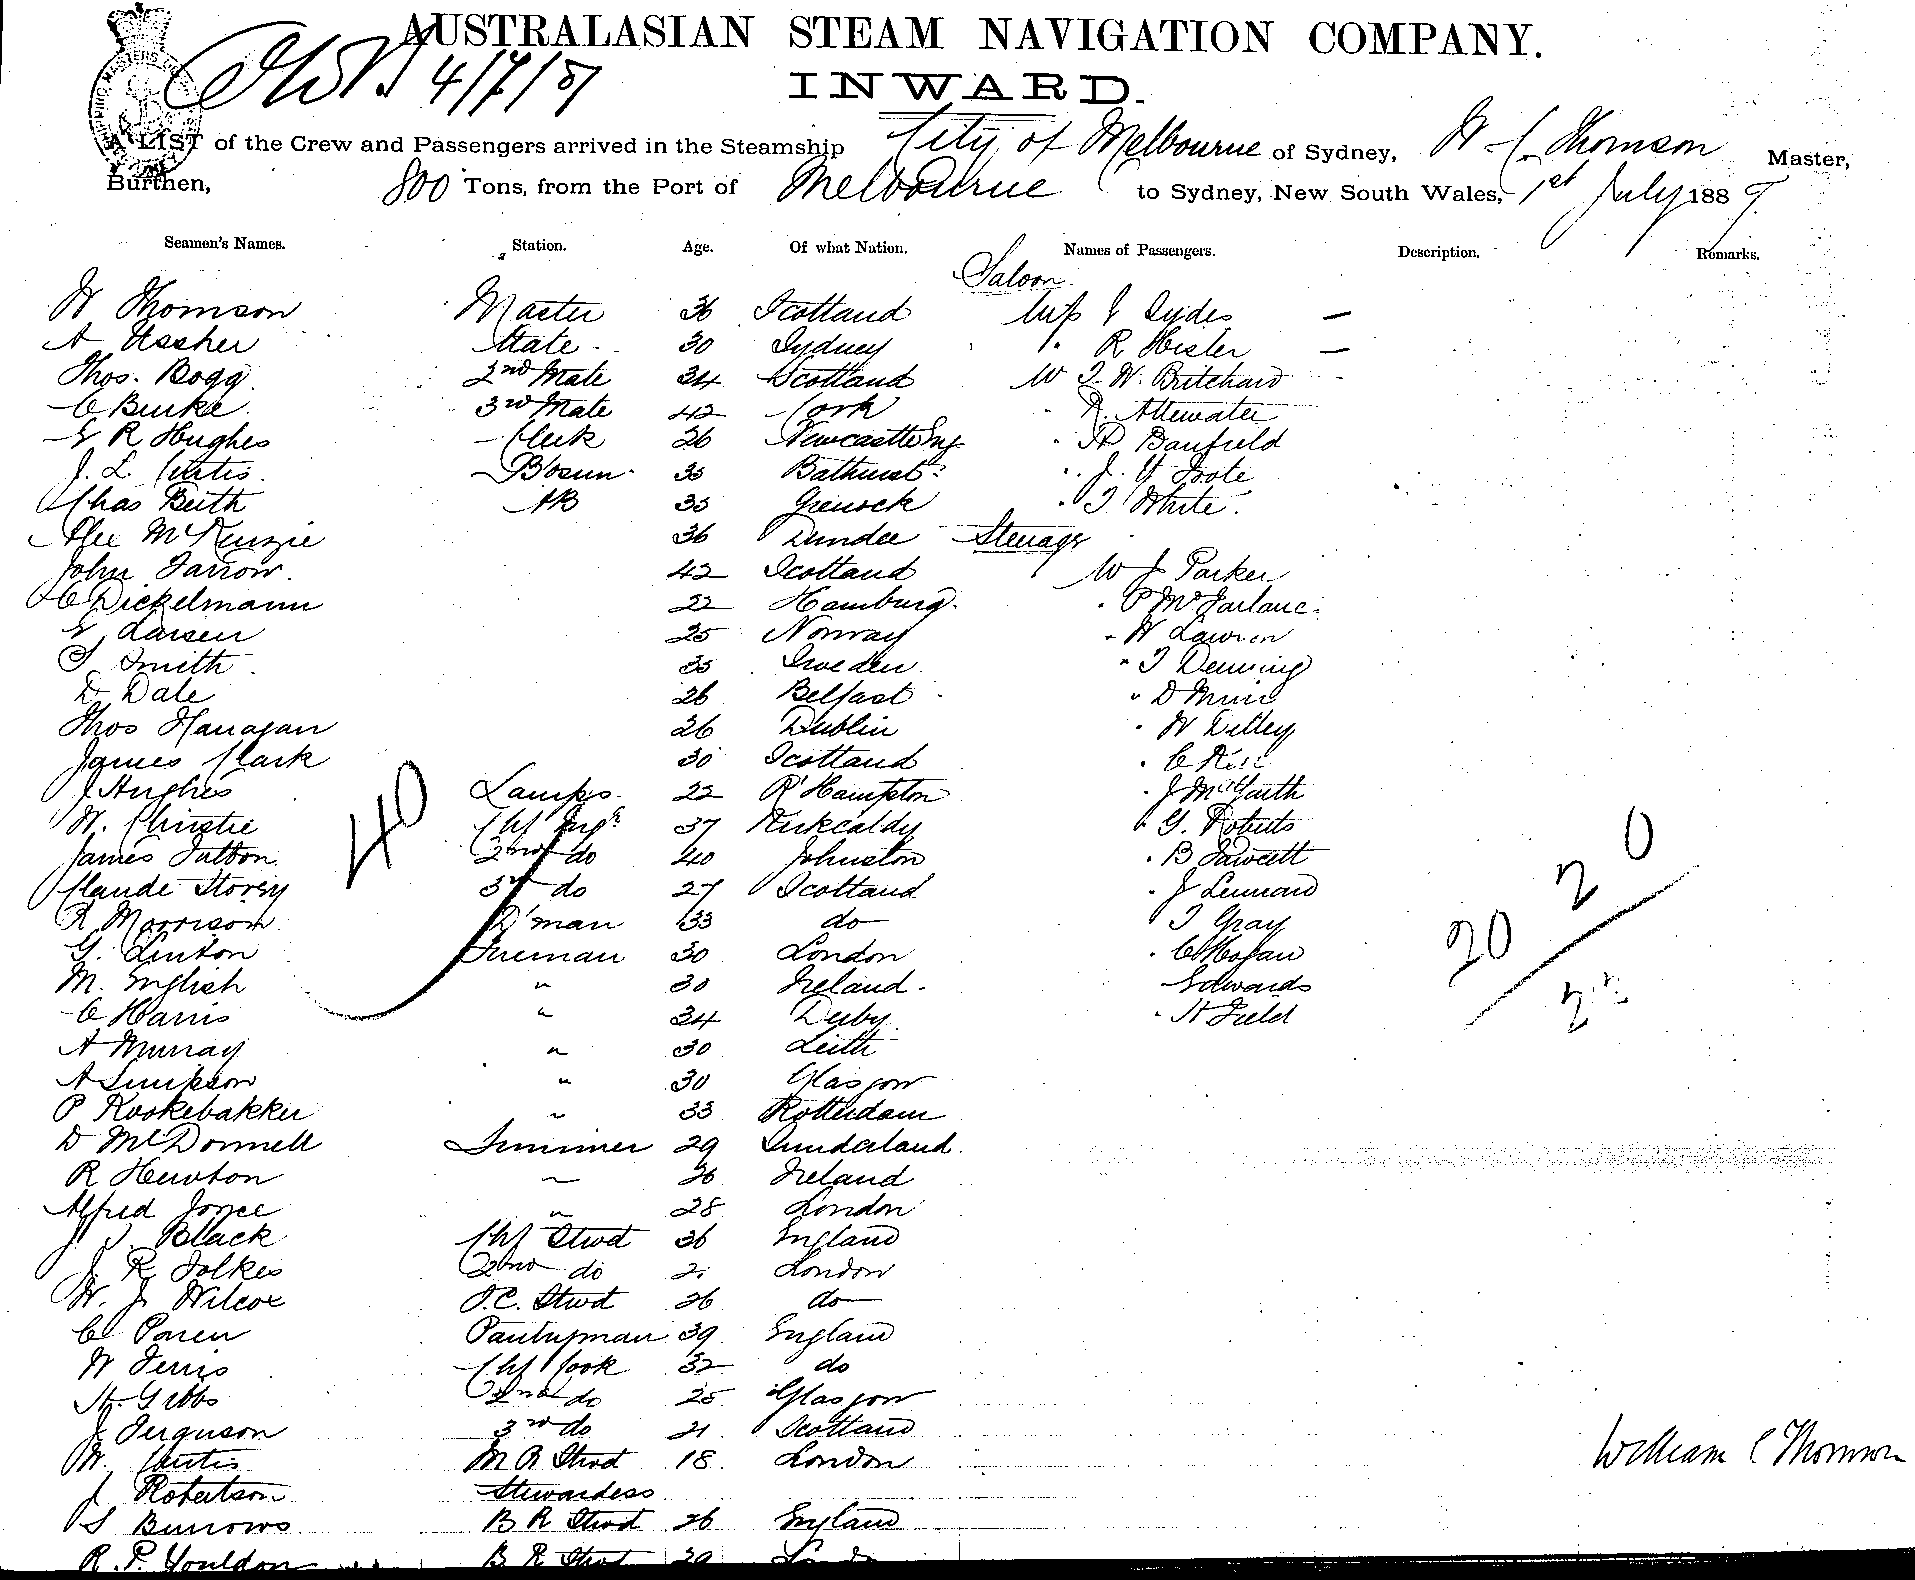 AUSTRALASIAN STEAM NAVIGATION COMPANY.
4/7/87
INWARD.
A LIST of the Crew and Passengers arrived in the Steamship City of Melbourne of Sydney, W C Thomson Master,
Burthen, 800 Tons, from the Port of Melbourne to Sydney, New South Wales, 1st July 1887
Seamen's Names. Station. Age. Of what Nation. Names of Passengers. Description. Remarks.
Saloon
W Thomson Master 36 Scotland Miss J Sydes —
A Ussher Mate 30 Sydney " R Hisler —
Thos. Bogg 2nd Mate 34 Scotland Mr W. Britchard
C Burke 3rd Mate 42 Cork " Attewater
E R Hughes Clerk 26 Newcastle Eng " Banfield
J. L Curtis Bosun 35 Bathurst " J. Y Foote
Chas Beith AB 35 Greenock " T White
Alex McKenzie 36 Dundee Steerage
John Farrow 42 Scotland Mr J Parker
C Dickelmann 22 Hamburg " P McFarlane
E Larsen 25 Norway " W Lawson
S Smith 35 Sweden " T Denning
D Dale 26 Belfast " D Muir
Thos Flanagan 26 Dublin " W Dilley
James Clark 30 Scotland " C
J Hughes Lamps 22 R'Hampton " J
W. Christie Chf Engr 37 Kirkcaldy " G. Roberts
James Sutton 2nd do 40 Johnston " B Fawcett
Claude Storey 3rd do 27 Scotland " J Lennard
R Morrison D'man 33 do " T Gray
G. Linton Fireman 30 London " C Hogan
M. English " 30 Ireland Edwards
C Harris " 34 Derby " H Field
A Murray " 30 Leith
A Simpson " 30 Glasgow
P Kookebakker " 33 Rotterdam
D McDonnell Trimmer 29 Sunderland
R Hewton " 26 Ireland
Alfred Joyce " 28 London
J Black Chf Stwd 36 England
J R Folkes 2nd do London
W. J. Wilcox F.C. Stwd 26 do
C Paren Pantryman 39 England
W Ferris Chf Cook 32 do
H. Gibbs 2nd do 25 Glasgow
J Ferguson 3rd do 21 Scotland
W. Curtis M R Stwd 18 London
J Robertson Stewardess
S Burrows B R Stwd 26 England
R. P. Youldon B R Stwd 29 London
40
20 20
William C Thomson